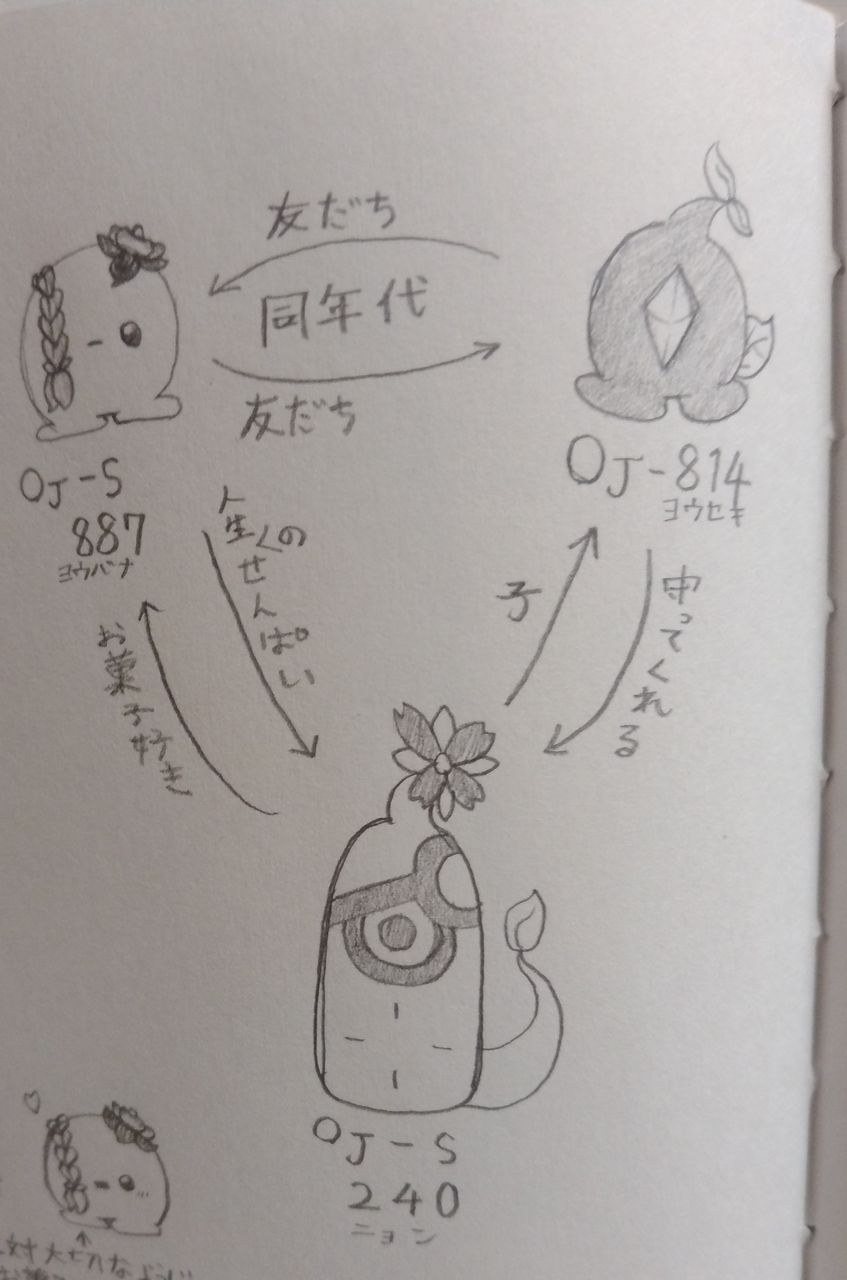 友だち
同年代
友だち
OJ-S
887
ヨウバナ
OJ-814
ヨウセキ
人生の
せんぱい
お菓子好き
子
守ってくれる
OJ-S
240
ニョン
対大切な